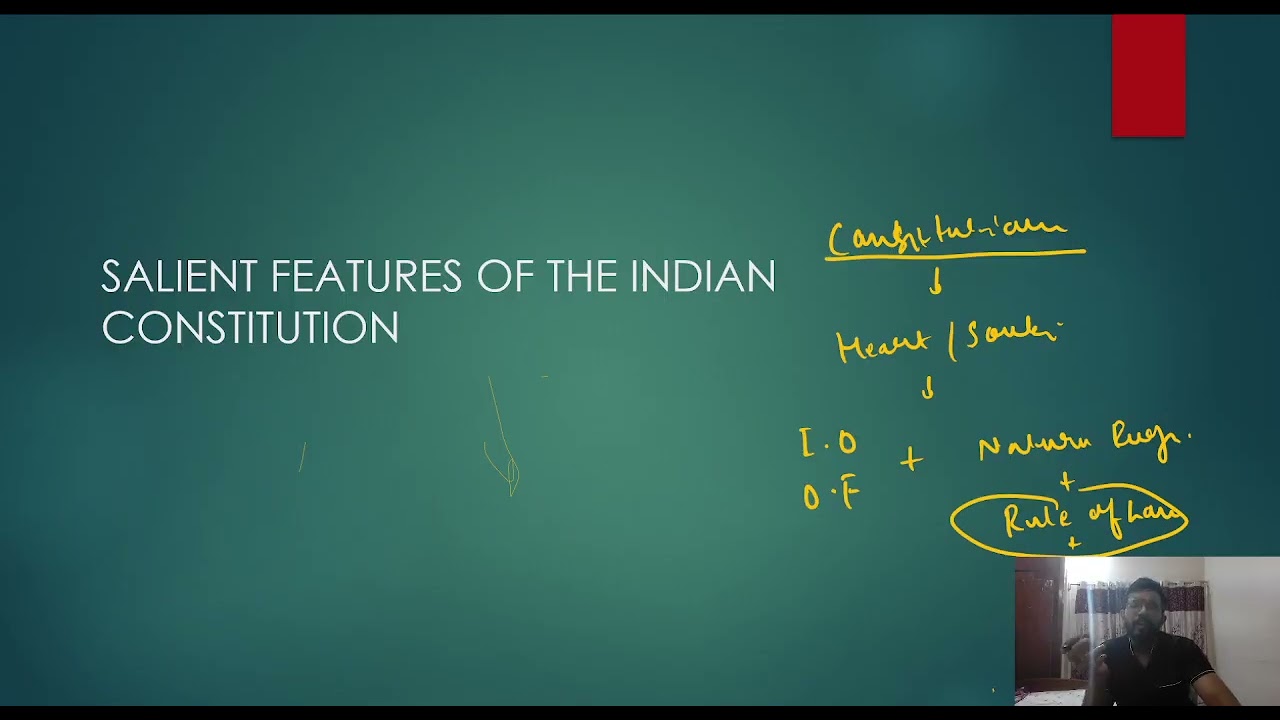 SALIENT FEATURES OF THE INDIAN
CONSTITUTION
Constitution
↓
Heart / Soul
↓
I.O + Nature
O.F
+
Rule of Law
+